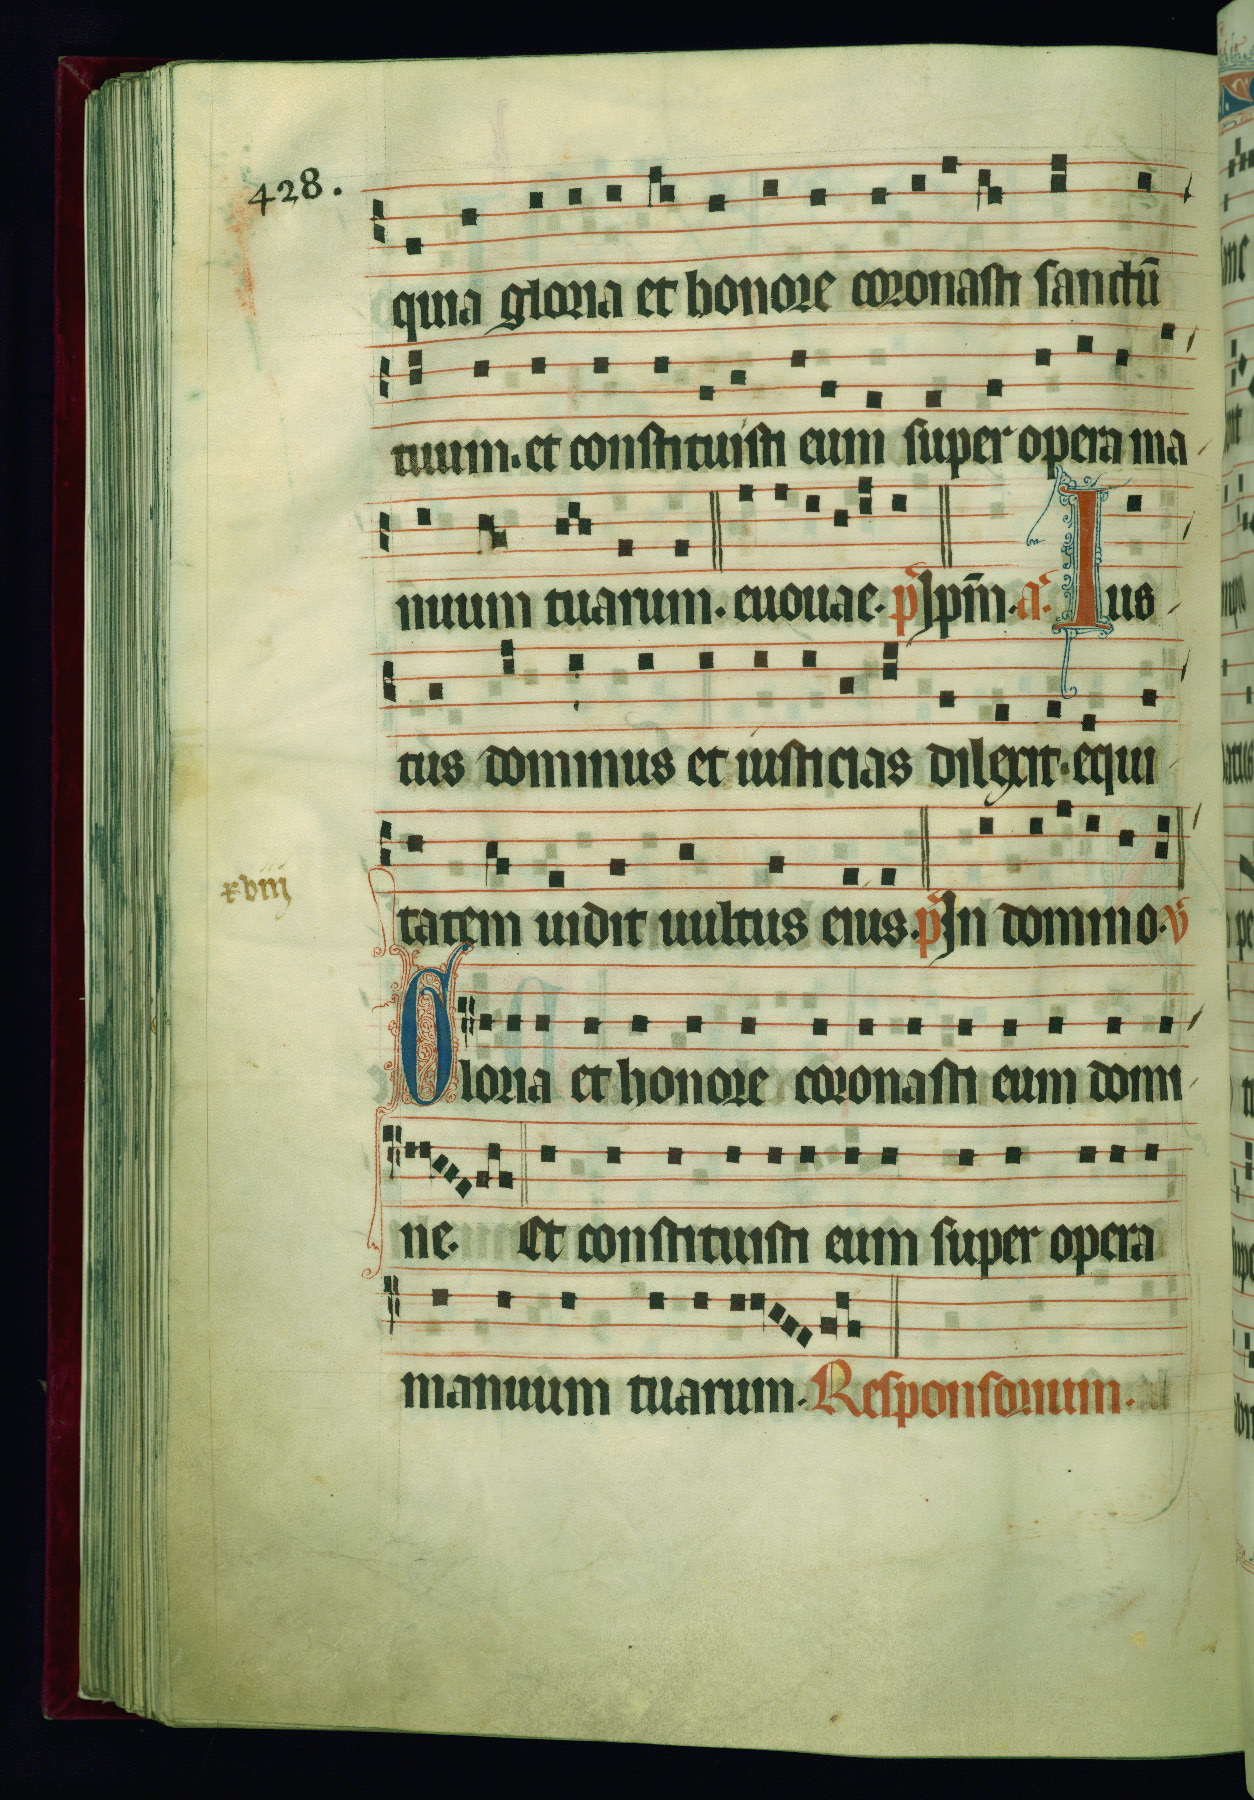 428.
quia gloria et honore coronasti sanctū
tuum. et constituisti eum super opera ma
nuum tuarum. euouae. p̄ Ipm̄. a. Ius
tus dominus et iusticias dilexit. equi
xviij
tatem uidit uultus eius. p̄ In domino. v̄
Gloria et honore coronasti eum domi
ne. Et constituisti eum super opera
manuum tuarum. Responsorium.